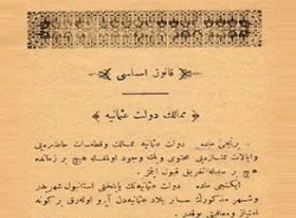 ﴿ قانون اساسى ﴾
﴿ ممالك دولت عثمانيه ﴾
برنجى ماده دولت عثمانيه ممالك و قطعات حاضره‌يى
و ايالات ممتازه‌يى محتوى و يك وجود اولمغله هيچ بر زمانده
هيچ بر سببله تفريق قبول ايتمز
ايكنجى ماده دولت عثمانيه‌نك پايتختى استانبول شهريدر
و شهر مذكورك سائر بلاد عثمانيه‌دن آيرو اوله‌رق بر كونه
امتياز و معافيتى يوقدر